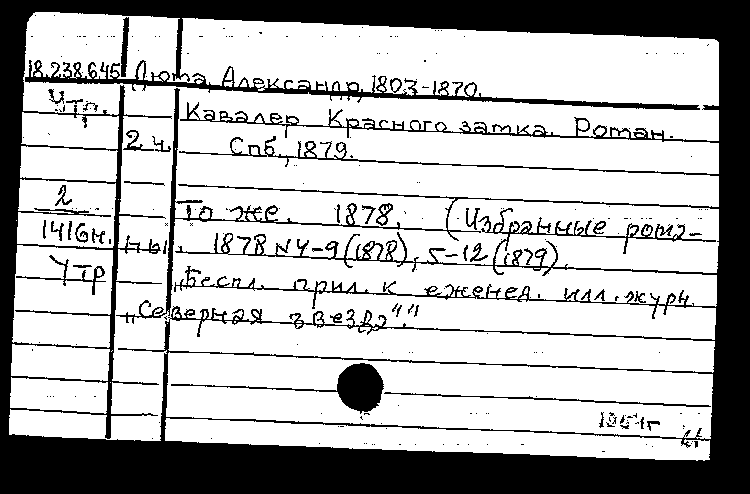 18.238.645 Дюма, Александр, 1803-1870.
Утр. Кавалер Красного замка. Роман.
2 ч. Спб., 1879.
2 То же. 1878. (Избранные рома-
1416н. ны. 1878 № 4-9 (1878), 5-12 (1879).
Утр „Беспл. прил. к еженед. илл. журн.
„Северная звезда“."